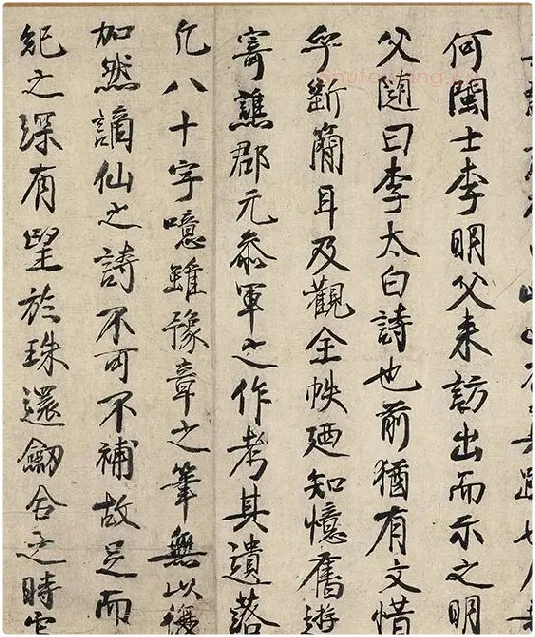 何閩士李明父来訪出而示之明
父随曰李太白詩也前猶有文惜
乎斷簡耳及觀全帙廼知憶舊遊
寄譙郡元叅軍之作考其遺落
凡八十字噫雖豫章之筆無以復
加然謫仙之詩不可不補故足而
紀之深有望於珠還劒合之時